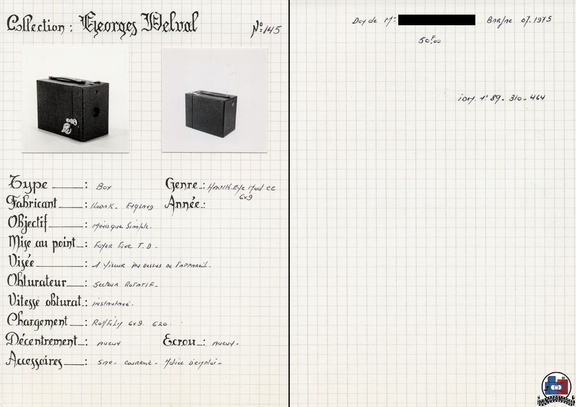 Collection : Georges Delval N° 145
Type : Box Genre : Hawk.Eye Mod CC
6x9
Fabricant : Année :
Objectif : Menisque Simple.
Mise au point : Foyer Fixe T.D.
Visée : 1 Viseur au dessus de l'appareil.
Obturateur : Secteur Rotatif.
Vitesse obturat. : instantané.
Chargement : Rollfilm 6x9 620
Décentrement : Aucun Ecrou : Aucun.
Accessoires : Sac. courroie. Notice d'emploi.
Don de Mr 07.1975
50F00
1er. 89-310-464